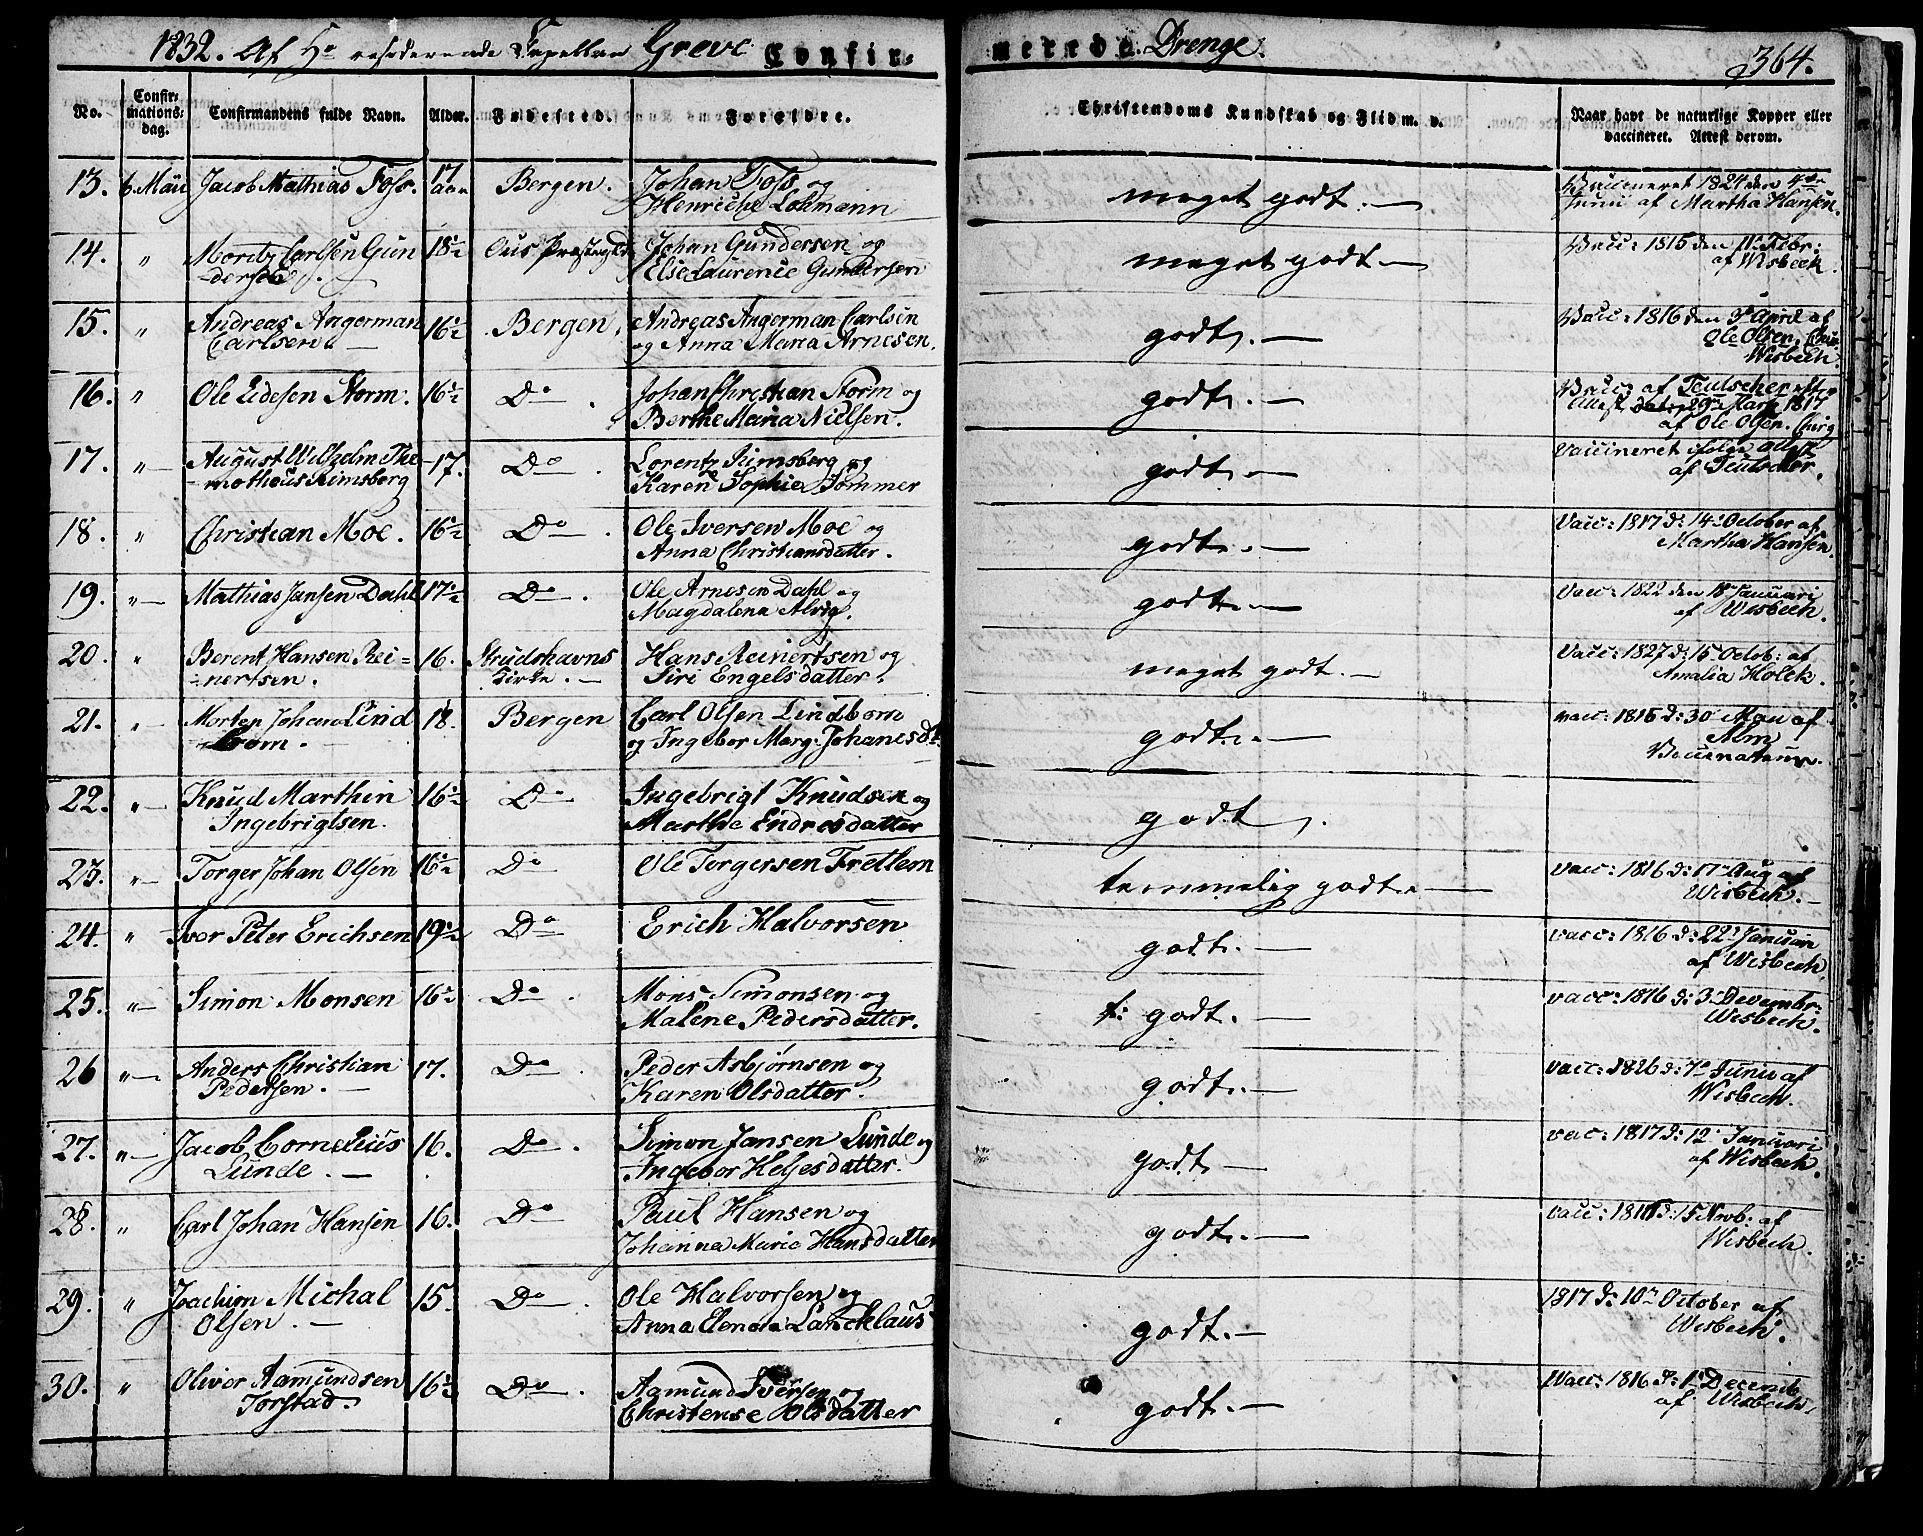 1832. Af Hr residerende Capellan Greve Confir-
merede Drenge. 364.
No. Confir-mations-dag. Confirmandens fulde Navn. Alder. Fødested. Forældre. Christendoms Kundskab og Flid m. v. Naar havt de naturlige Kopper eller vaccineret. Attest derom.
13. 6 Maii Jacob Mathias Foss. 17 aar Bergen. Johan Foss og meget godt. Vaccineret 1824 den 4de
Henriche Lohmann Junii af Martha Hansen.
14. " Moritz Carlsen Gun 18½ Ous Præstegield Johan Gundersen og meget godt Vacc: 1815 den 11' Febr:
-dersen. Else Laurence Gundersen af Wisbech.
15. " Andreas Angerman 16½ Bergen, Andreas Angerman Carlsen godt. Vacc: 1816 den 3' April af
Carlsen. og Anna Maria Arnesen. Ole Olsen, Chir:
Wisbech.
16. " Ole Eidesen Storm. 16½ Do. Johan Christian Storm og godt. Vacc: af Teutscher
Berthe Maria Nielsen. Attest dat: 29' Marz 1817
af Ole Olsen. Chirg
17. " August Wilhelm The 17. Do. Lorentz Rimsberg og godt Vaccineret ifølge Attest
-motheus Rimsberg Karen Sophia Sommer af Teutscher.
18. " Christian Moe. 16½ Do. Ole Iversen Moe og godt. Vacc: 1817 d: 14' October af
Anna Christiansdatter. Martha Hansen.
19. " Mathias Jansen Dahl 17½ Do. Ole Arnesen Dahl og godt. Vacc: 1822 den 18' Januari
Magdalena Alvig. af Wisbech.
20. " Berent Hansen Rei= 16. Strudshavns Hans Reinertsen og meget godt. Vacc: 1827 d: 15' Octob: af
-nertsen. Kirke. Siri Engelsdatter. Amalia Holck.
21. " Morten Johan Lind 18. Bergen Carl Olsen Lindbom godt. vacc: 1815 d: 30' Mai af
-bom. og Ingebor Marg: Johanesdt. Alm
22. " Knud Marthin 16½ Do Ingebrigt Knudsen og godt.
Ingebrigtsen. Marthe Endresdatter
23. " Torger Johan Olsen 16½ Do Ole Torgersen Fretlem temmelig godt. vacc: 1816 d: 17' Aug af
Wisbech.
24. " Iver Peter Erichsen 19½ Do Erich Halvorsen godt. vacc: 1816 d: 22' Januari
af Wisbech,
25. " Simon Monsen 16½ Do. Mons Simonsen og t: godt. vacc: 1816 d: 3' Decembr:
Malene Pedersdatter. Wisbech.
26 " Anders Christian 17. Do. Peder Asbjørnsen og godt. vacc: 1826 d: 7' Junii af
Pedersen. Karen Olsdatter. Wisbech.
27. " Jacob Cornelius 16. Do. Simon Jansen Lunde og godt vac: 1817 d: 12' Januari
Lunde. Ingebor Helgesdatter. af Wisbech.
28. " Carl Johan Hansen 16. Do Paul Hansen og godt. vacc: 1816 d: 15 Novb: af
Johanna Maria Hansdatter Wisbech.
29. " Joachim Michal 15. Do. Ole Halvorsen og godt. 1817 d: 10' October af
Olsen. Anna Elenora Lancklaus Wisbech.
30. " Oliver Aamundsen 16½ Do. Aamund Iversen og godt. Vacc: 1816 d: 1' Decemb
Torstad. Christense Olsdatter af Wisbech.